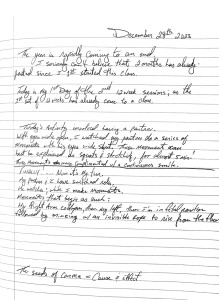 December 29th 2023
The year is rapidly coming to an end.
I seriously can't believe that 2 months has already
passed since I 1st started this class.
Today is my 1st Day of the 2nd 12 week sessions, as the
1st set of 12 weeks has already came to a close.
Today's Activity involved having a partner.
With eyes wide open, I watched my partner do a series of
movements with his eyes wide shut. These movements can
best be explained as squats & stretching, for almost 5 min.
These movements
continuous smile.
Finally! ... Now it's my turn.
My partner & I have switched roles,
He watches, while I make movements.
Movements that begin as such:
My Right Arm collapses, then my left, then I'm in fetal position
followed by
an invisible rope to rise from the floor
The seeds of Karma = Cause & Effect